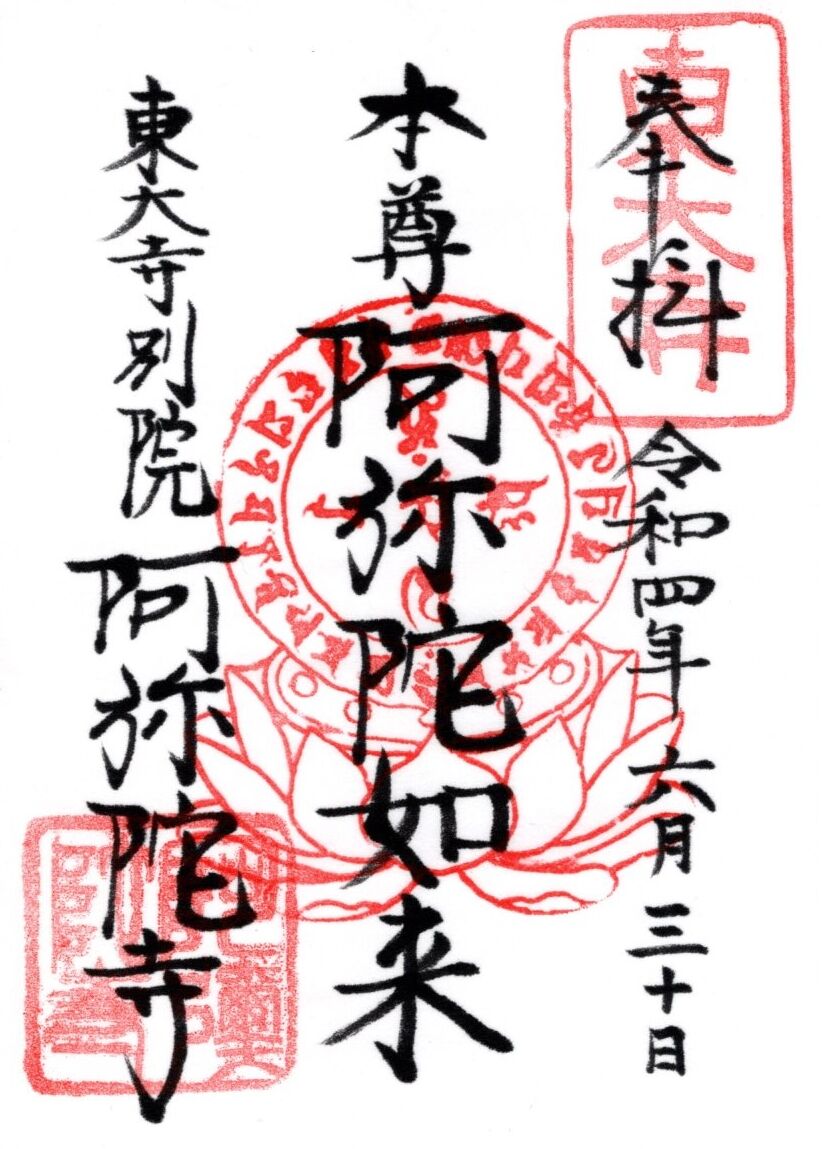 奉拝 令和四年六月三十日
本尊 阿弥陀如来
東大寺別院 阿弥陀寺